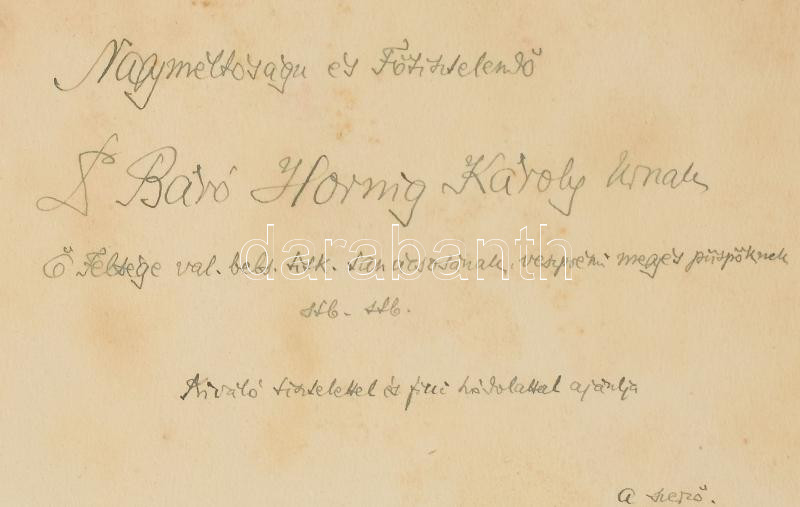 Nagyméltóságu és Főtisztelendő
Dr Báró Hornig Károly Urnak
Ő Felsége val. belső titk. tanácsosának, veszprémi megyés püspöknek
stb. stb.
Kiváló tisztelettel és fiui hódolattal ajánlja
a szerző.
darabanth